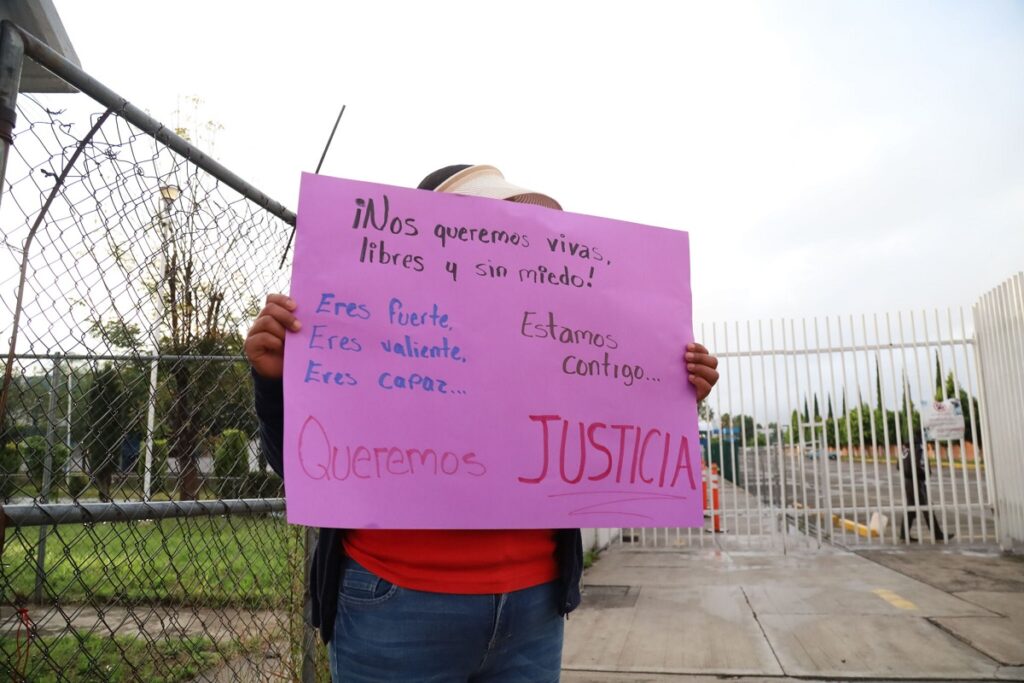 ¡Nos queremos vivas,
libres y sin miedo!
Eres fuerte,
Eres valiente,
Eres capaz...
Estamos
contigo...
Queremos JUSTICIA